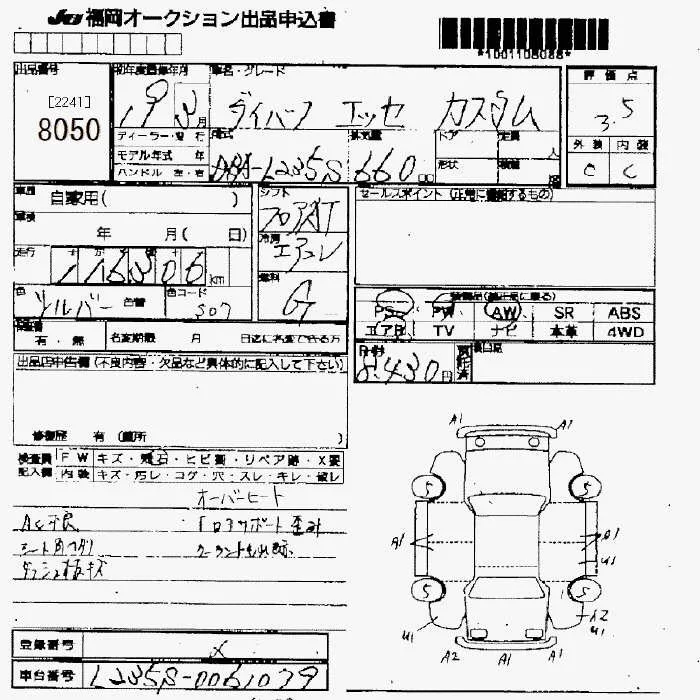 JU福岡オークション出品申込書
*1001108088*
出品番号 初年度登録年月 車名・グレード 評価点
[2241]
8050
19 3月 ダイハツ エッセ カスタム 3.5
ディーラー・並行 型式 排気量 ドア 定員
モデル年式 年 形状 積載 外装 内装
ハンドル 左・右 DBA-L235S 660 C C
車歴 自家用( ) シフト セールスポイント(正常に機能するもの)
フロアAT
車検 年 月( 日) 冷房 エアコン
走行 116306 km 燃料 G
色 シルバー 色替 色コード S07
装備品(純正品に限る)
PS PW AW SR ABS
エアB TV ナビ 本革 4WD
有・無 名変期限 月 日迄に名変できる方
8,430円
出品店申告欄(不良内容・欠品など具体的に記入して下さい)
修復歴 有(箇所 )
検査員 FW キズ・飛石・ヒビ割・リペア跡・X要
記入欄 内装 キズ・汚レ・コゲ・穴・スレ・キレ・破レ
オーバーヒート
A/C不良
クーラントもれ跡
A1 A1
5 5
A1 A1
U1
5 5
U1 A2
U1
A2 A1 A1
登録番号 X
車台番号 L235S-0061079